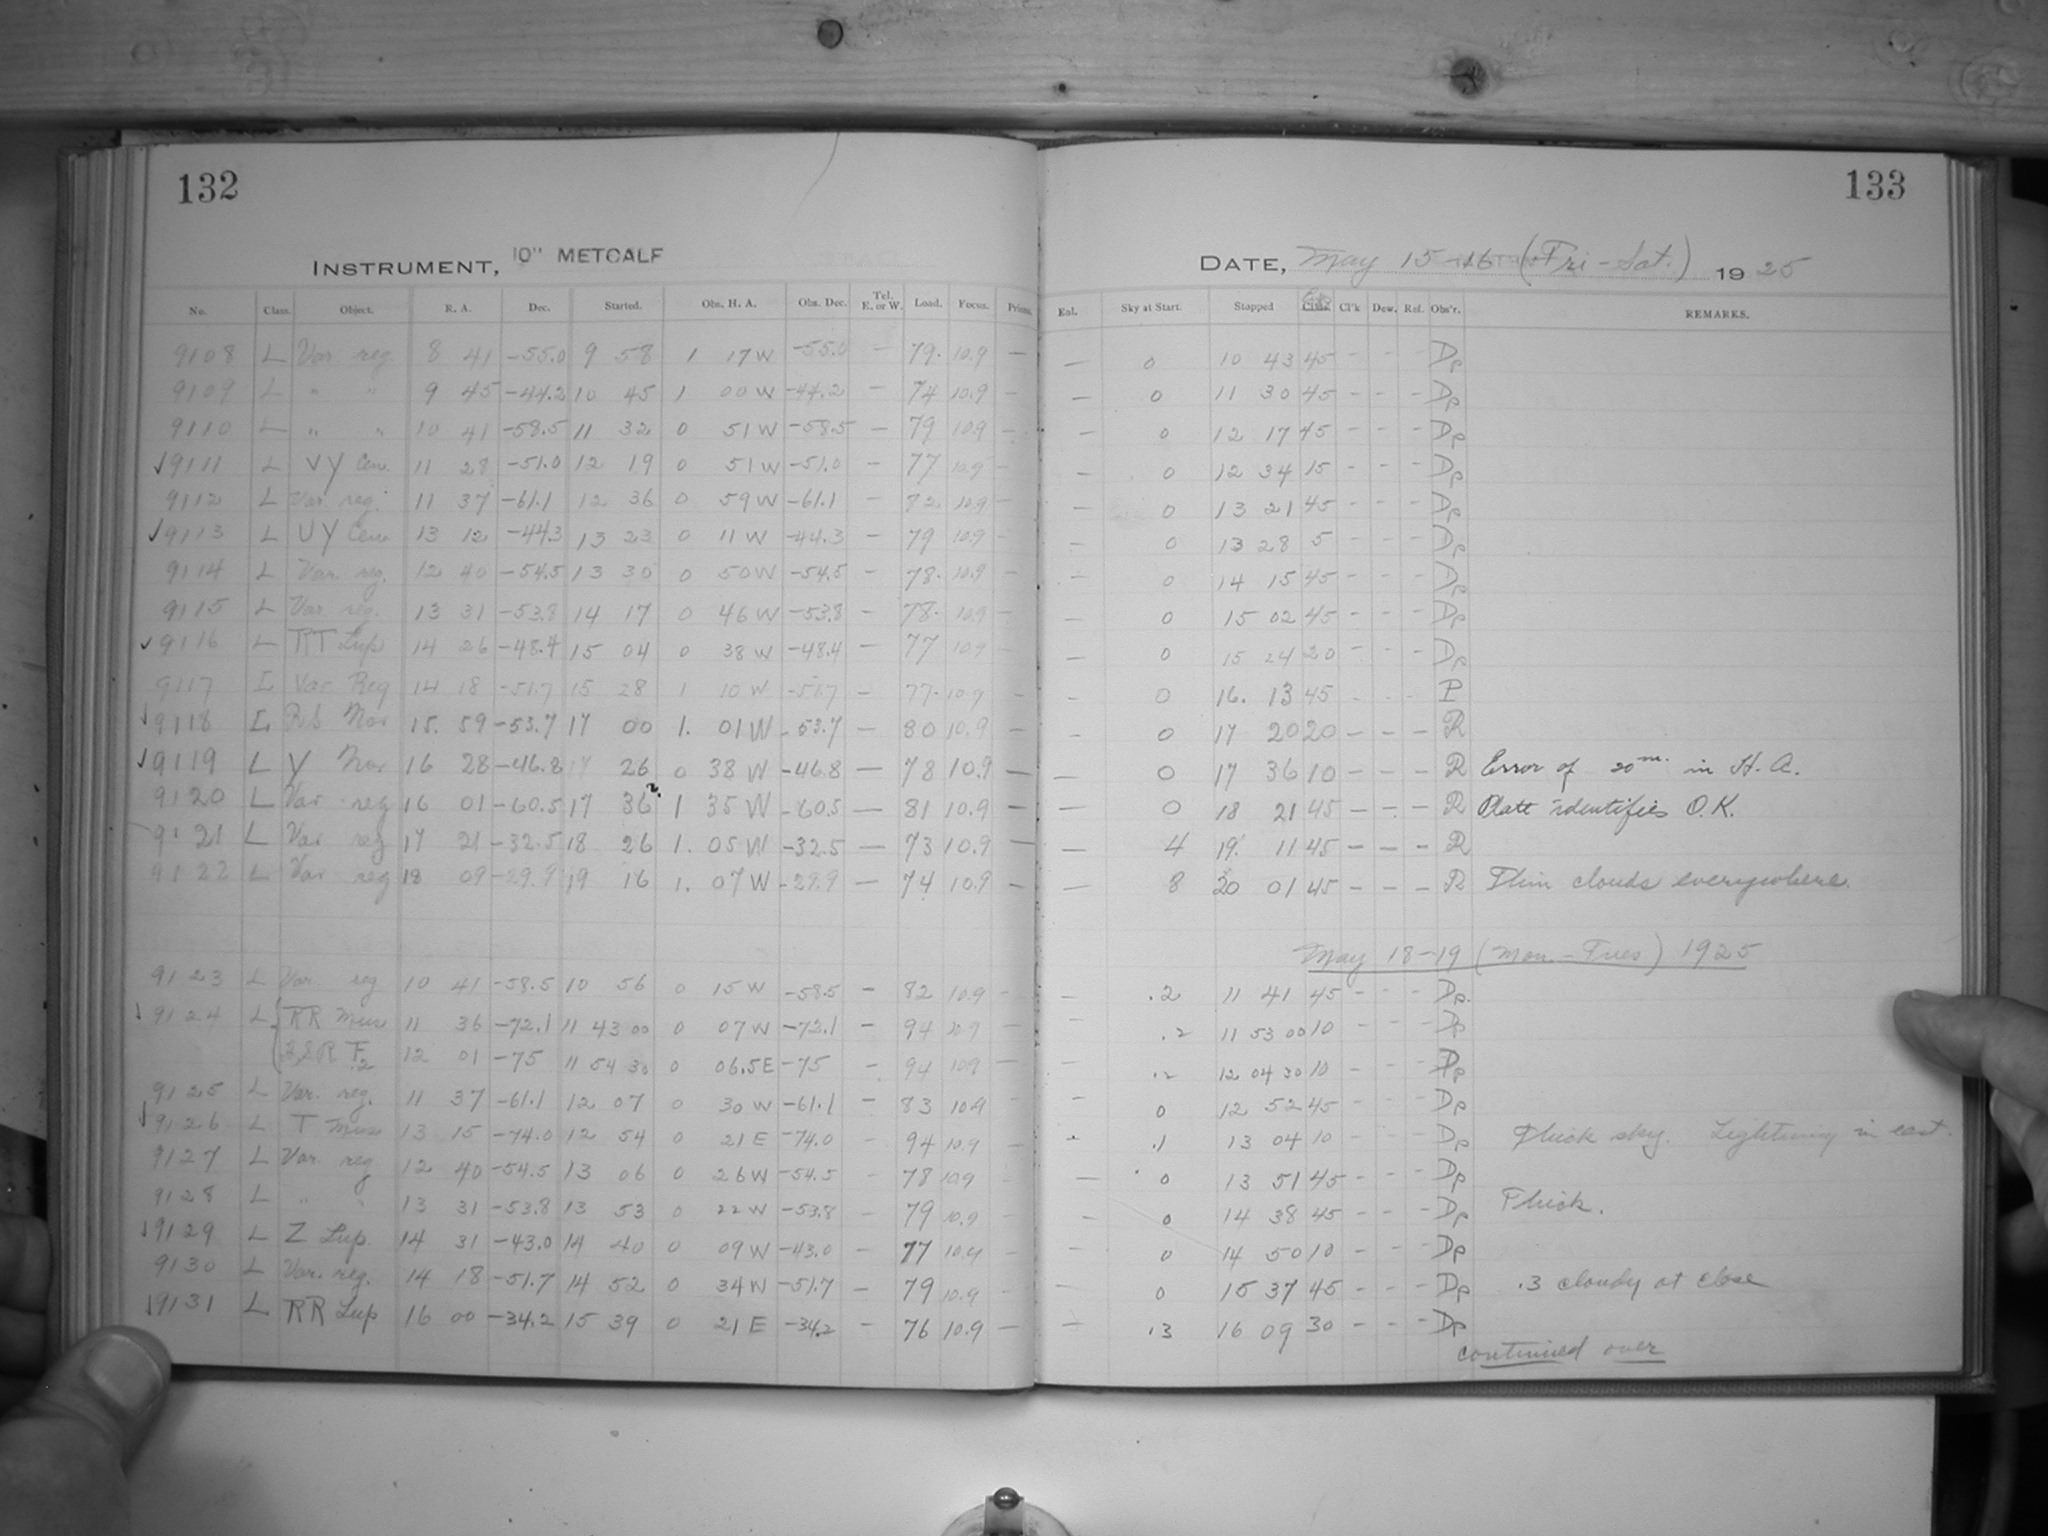 132
133
INSTRUMENT, 10" METCALF
DATE, May 15-16 (Fri-Sat.) 1925
No. Class. Object. R. A. Dec. Started. Obs. H. A. Obs. Dec. Tel. E. or W. Load. Focus. Prisms. Eol. Sky at Start. Stopped Cl'k Dew. Ref. Obs'r. REMARKS.
9108 L Var. reg. 8 41 -55.0 9 58 1 17 W -55.0 - 79. 10.9 - - 0 10 43 45 - - - Dp
9109 L " " 9 45 -44.2 10 45 1 00 W -44.2 - 74 10.9 - - 0 11 30 45 - - - Dp
9110 L " " 10 41 -58.5 11 32 0 51 W -58.5 - 79 10.9 - - 0 12 17 45 - - - Dp
√9111 L VY Cen. 11 28 -51.0 12 19 0 51 W -51.0 - 77 10.9 - - 0 12 34 15 - - - Dp
9112 L Var. reg. 11 37 -61.1 12 36 0 59 W -61.1 - 82 10.9 - - 0 13 21 45 - - - Dp
√9113 L UY Cen 13 12 -44.3 13 23 0 11 W -44.3 - 79 10.9 - - 0 13 28 5 - - - Dp
9114 L Var. reg. 12 40 -54.5 13 30 0 50 W -54.5 - 78. 10.9 - - 0 14 15 45 - - - Dp
9115 L Var. reg. 13 31 -53.8 14 17 0 46 W -53.8 - 78. 10.9 - - 0 15 02 45 - - - Dp
√9116 L RT Lup 14 26 -48.4 15 04 0 38 W -48.4 - 77 10.9 - - 0 15 24 20 - - - Dp
9117 L Var Reg 14 18 -51.7 15 28 1 10 W -51.7 - 77. 10.9 - - 0 16. 13 45 - - - P
√9118 L RS Nor 15. 59 -53.7 17 00 1. 01 W -53.7 - 80 10.9 - - 0 17 20 20 - - - R
√9119 L Y Nor 16 28 -46.8 17 26 0 38 W -46.8 - 78 10.9 - - 0 17 36 10 - - - R Error of 20m. in H. A.
9120 L Var reg 16 01 -60.5 17 36 ?. 1 35 W -60.5 - 81 10.9 - - 0 18 21 45 - - - R Plate identifies O.K.
9121 L Var reg 17 21 -32.5 18 26 1. 05 W -32.5 - 73 10.9 - - 4 19. 11 45 - - - R
9122 L Var reg 18 09 -29.9 19 16 1. 07 W -29.9 - 74 10.9 - - 8 20 01 45 - - - R Thin clouds everywhere.
May 18-19 (Mon.-Tues) 1925
9123 L Var. reg 10 41 -58.5 10 56 0 15 W -58.5 - 82 10.9 - - .2 11 41 45 - - - Dp.
√9124 L RR Mus 11 36 -72.1 11 43 00 0 07 W -72.1 - 94 10.9 - - .2 11 53 00 10 - - - Dp
12 01 -75 11 54 30 0 06.5 E -75 - 94 10.9 - - .2 12 04 30 10 - - - Dp
9125 L Var. reg. 11 37 -61.1 12 07 0 30 W -61.1 - 83 10.9 - - 0 12 52 45 - - - Dp
√9126 L T Mus 13 15 -74.0 12 54 0 21 E -74.0 - 94 10.9 - - .1 13 04 10 - - - Dp Thick sky. Lightning in east.
9127 L Var. reg 12 40 -54.5 13 06 0 26 W -54.5 - 78 10.9 - - 0 13 51 45 - - - Dp
9128 L " " 13 31 -53.8 13 53 0 22 W -53.8 - 79 10.9 - - 0 14 38 45 - - - Dp Thick.
√9129 L Z Lup. 14 31 -43.0 14 40 0 09 W -43.0 - 77 10.9 - - 0 14 50 10 - - - Dp
9130 L Var. reg. 14 18 -51.7 14 52 0 34 W -51.7 - 79 10.9 - - 0 15 37 45 - - - Dp .3 cloudy at close
√9131 L RR Lup 16 00 -34.2 15 39 0 21 E -34.2 - 76 10.9 - - .3 16 09 30 - - - Dp
continued over